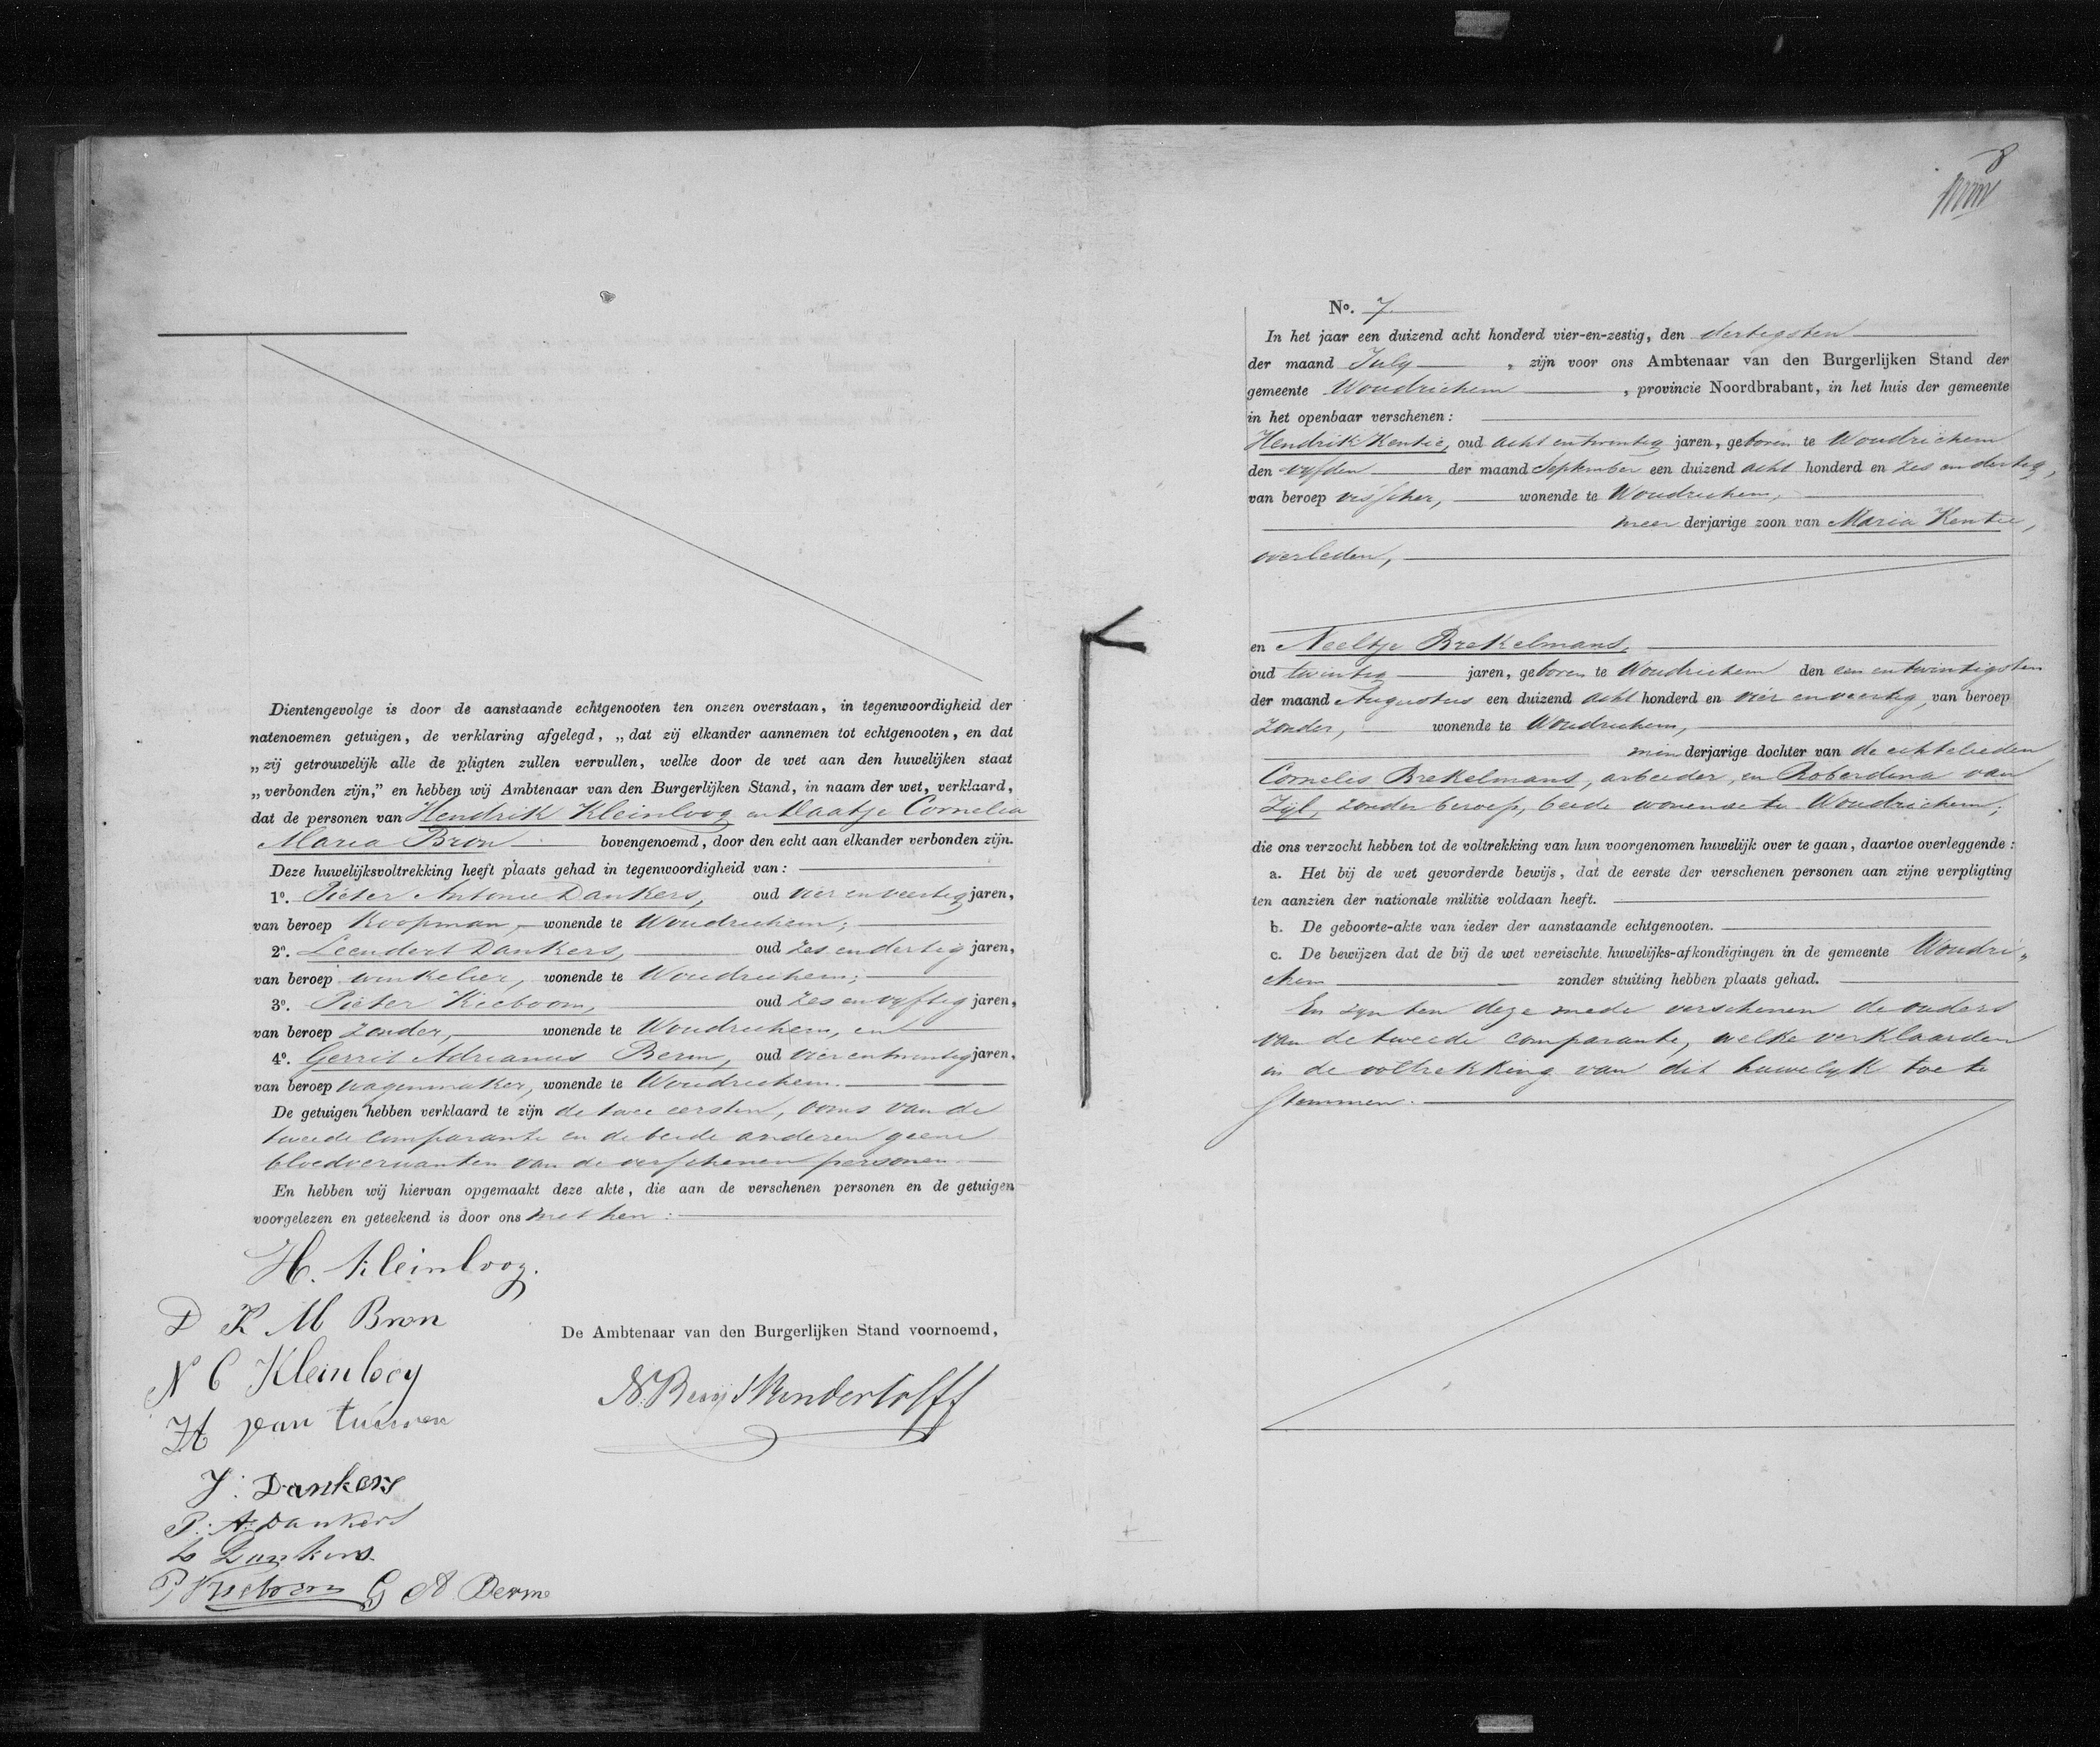 Dientengevolge is door de aanstaande echtgenooten ten onzen overstaan, in tegenwoordigheid der
natenoemen getuigen, de verklaring afgelegd, „dat zij elkander aannemen tot echtgenooten, en dat
„zij getrouwelijk alle de pligten zullen vervullen, welke door de wet aan den huwelijken staat
„verbonden zijn,” en hebben wij Ambtenaar van den Burgerlijken Stand, in naam der wet, verklaard,
dat de personen van Hendrik Kleinloog en Daatje Cornelia
Maria Bron bovengenoemd, door den echt aan elkander verbonden zijn.
Deze huwelijksvoltrekking heeft plaats gehad in tegenwoordigheid van:
1o. Pieter Antonie Dankers, oud vier en veertig jaren,
van beroep koopman, wonende te Woudrichem;
2o. Leendert Dankers, oud zes en dertig jaren,
van beroep winkelier, wonende te Woudrichem;
3o. Pieter Kieboom, oud zes en vyftig jaren,
van beroep zonder, wonende te Woudrichem, en
4o. Gerrit Adrianus Berm, oud vier en twintig jaren,
van beroep wagenmaker, wonende te Woudrichem.
De getuigen hebben verklaard te zijn de twee eersten, ooms van de
tweede comparante en de beide anderen geene
bloedverwanten van de verschenen personen
En hebben wij hiervan opgemaakt deze akte, die aan de verschenen personen en de getuigen
voorgelezen en geteekend is door ons met hen:
H. Kleinloog.
D K M Bron
N C Kleinloog
De Ambtenaar van den Burgerlijken Stand voornoemd,
H van
J: Dankers
P: A: Dankers
L Dankers.
P Kieboom G A Berm
8
No. 7.
In het jaar een duizend acht honderd vier-en-zestig, den dertigsten
der maand July, zijn voor ons Ambtenaar van den Burgerlijken Stand der
gemeente Woudrichem, provincie Noordbrabant, in het huis der gemeente
in het openbaar verschenen:
Hendrik Kentie, oud acht en twintig jaren, geboren te Woudrichem
den vyfden der maand September een duizend acht honderd en zes en dertig,
van beroep visscher, wonende te Woudrichem,
meerderjarige zoon van Maria Kentie,
overleden,
en Neeltje Brekelmans,
oud twintig jaren, geboren te Woudrichem den een en twintigsten
der maand Augustus een duizend acht honderd en vier en veertig, van beroep
zonder, wonende te Woudrichem,
minderjarige dochter van de echtelieden
Cornelis Brekelmans, arbeider, en Roberdina van
Zijl, zonder beroep, beide wonende te Woudrichem;
die ons verzocht hebben tot de voltrekking van hun voorgenomen huwelijk over te gaan, daartoe overleggende:
a. Het bij de wet gevorderde bewijs, dat de eerste der verschenen personen aan zijne verpligting
ten aanzien der nationale militie voldaan heeft.
b. De geboorte-akte van ieder der aanstaande echtgenooten.
c. De bewijzen dat de bij de wet vereischte huwelijks-afkondigingen in de gemeente Woudri„
chem zonder stuiting hebben plaats gehad.
En zyn ten deze mede verschenen de ouders
van de tweede comparante, welke verklaarden
in de voltrekking van dit huwelyk toe te
stemmen.